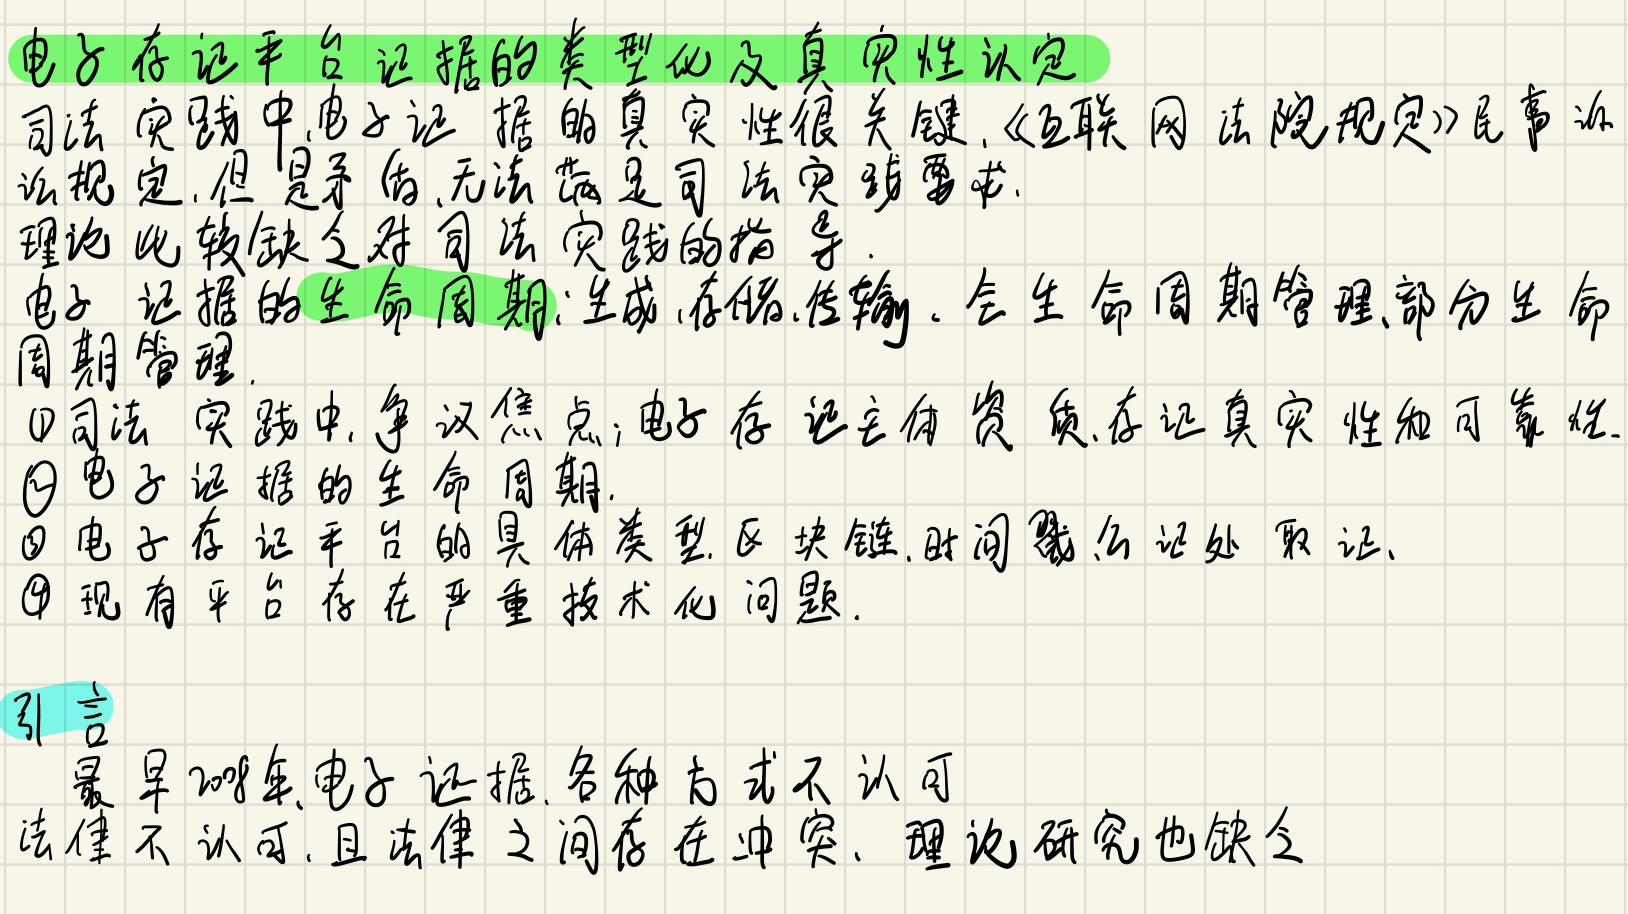 电子存证平台证据的类型化及真实性认定
司法实践中,电子证据的真实性很关键,《互联网法院规定》民事诉
讼规定,但是矛盾,无法满足司法实践要求.
理论也较缺乏对司法实践的指导.
电子证据的生命周期:生成,存储,传输.全生命周期管理、部分生命
周期管理.
①司法实践中,争议焦点;电子存证主体资质、存证真实性和可靠性.
②电子证据的生命周期.
③电子存证平台的具体类型.区块链、时间戳、公证处取证、
④现有平台存在严重技术化问题.
引言
最早2008年、电子证据、各种方式不认可
法律不认可.且法律之间存在冲突.理论研究也缺乏